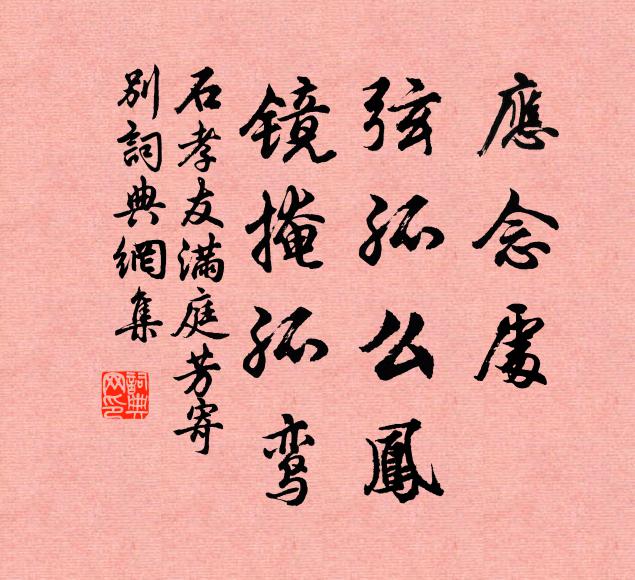 應念處
弦孤么鳳
镜掩孤鸾
石孝友滿庭芳寄
別詞典網集
詞典
网印